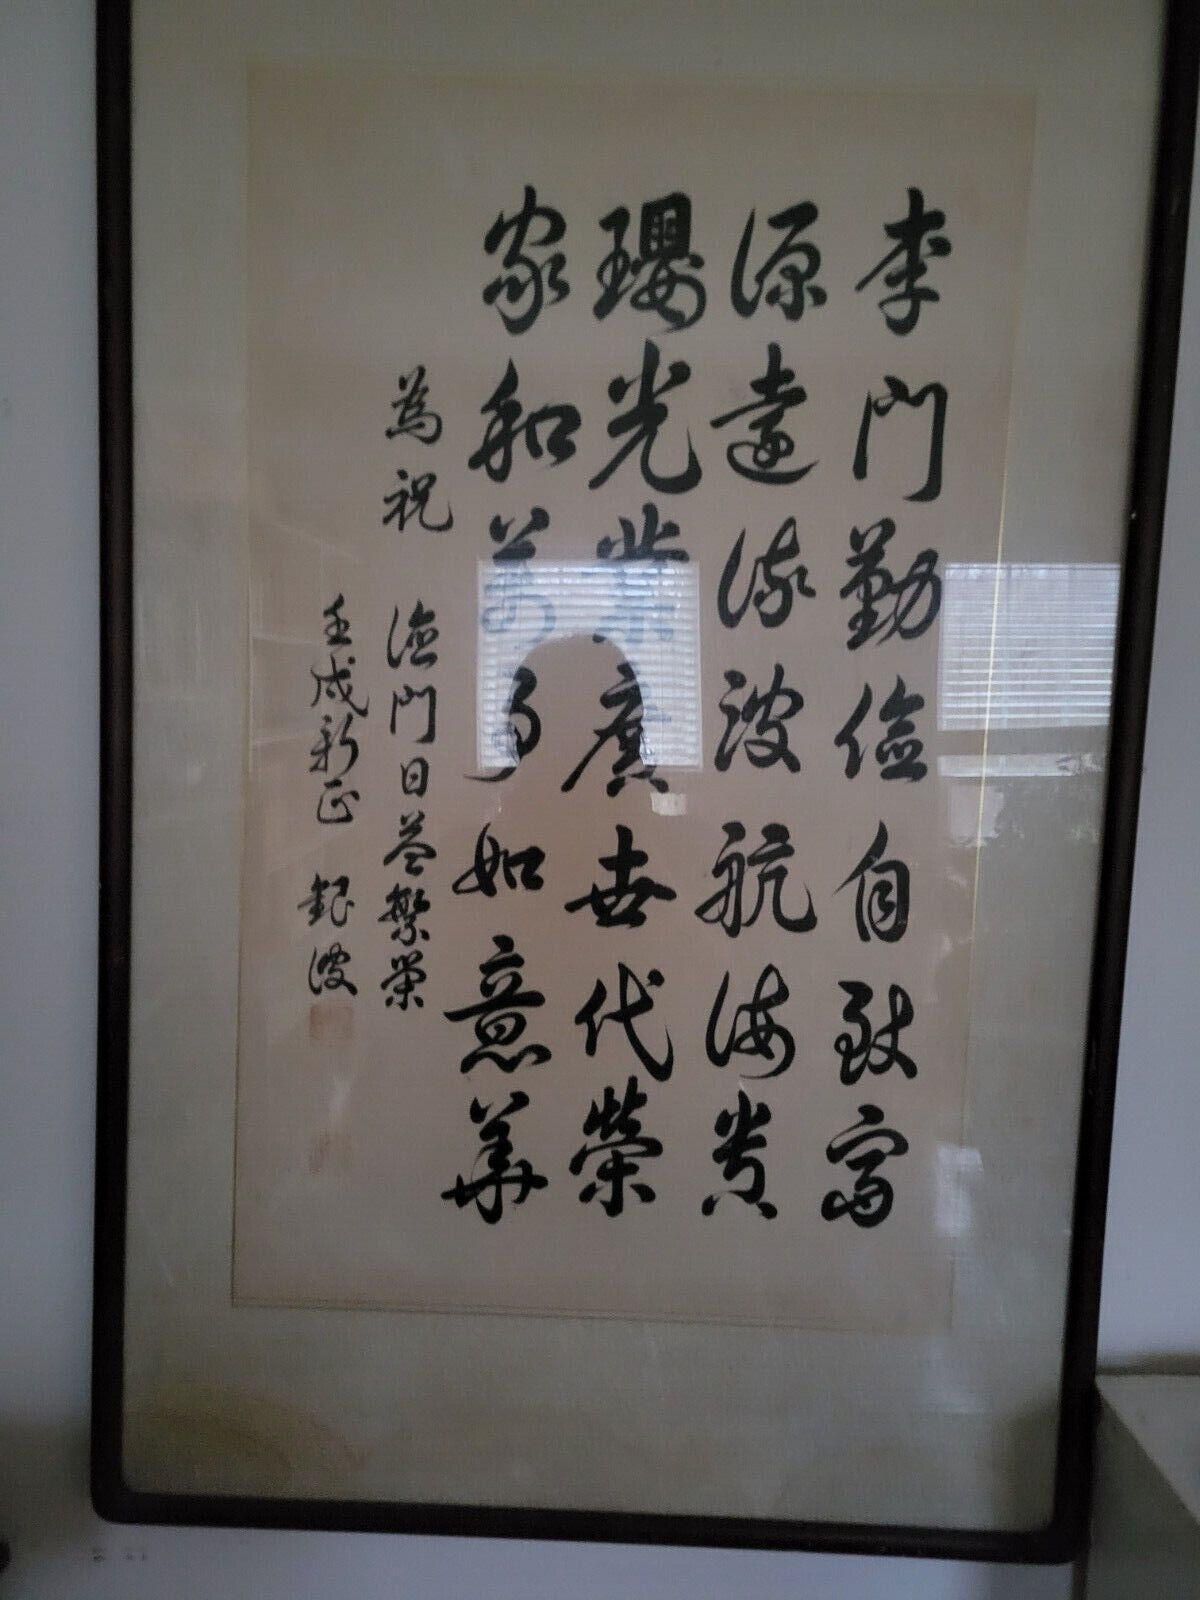 李門勤儉自致富
源遠流波航海貴
瓔光業廣世代榮
家和萬事如意華
為祝 德門日益繁榮
壬戌新正 銀波